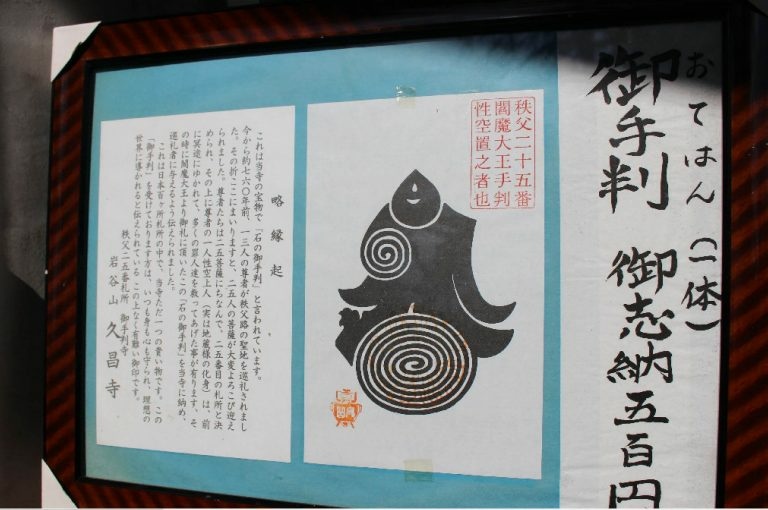 おてはん(一体)
御手判 御志納五百円
秩父二十五番
閻魔大王手判
性空置之者也
略縁起
これは当寺の宝物で「石の御手判」と言われています。
今から約七六〇年前、一三人の尊者が秩父路の聖地を巡礼されまし
た。その折ここにまいりますと、二五人の菩薩が大変よろこび迎え
られました。尊者たちは二五菩薩にちなんで、二五番目の札所と決
められ、その上に尊者の一人性空上人(実は地蔵様の化身)は、前
に冥途にゆかれて、多くの罪人達を救ってあげた事が有ります。そ
の時に閻魔大王より御札に頂いたこの「石の御手判」を当寺に納め、
巡礼者に与えるよう伝えられました。
これは日本百ヶ所札所の中で、当寺ただ一つの貴い物です。この
「御手判」を受けております方は、いつも身も心も守られ、理想の
世界に導かれると伝えられている この上なく有難い御印です。
秩父二五番札所 御手判寺
岩谷山 久昌寺